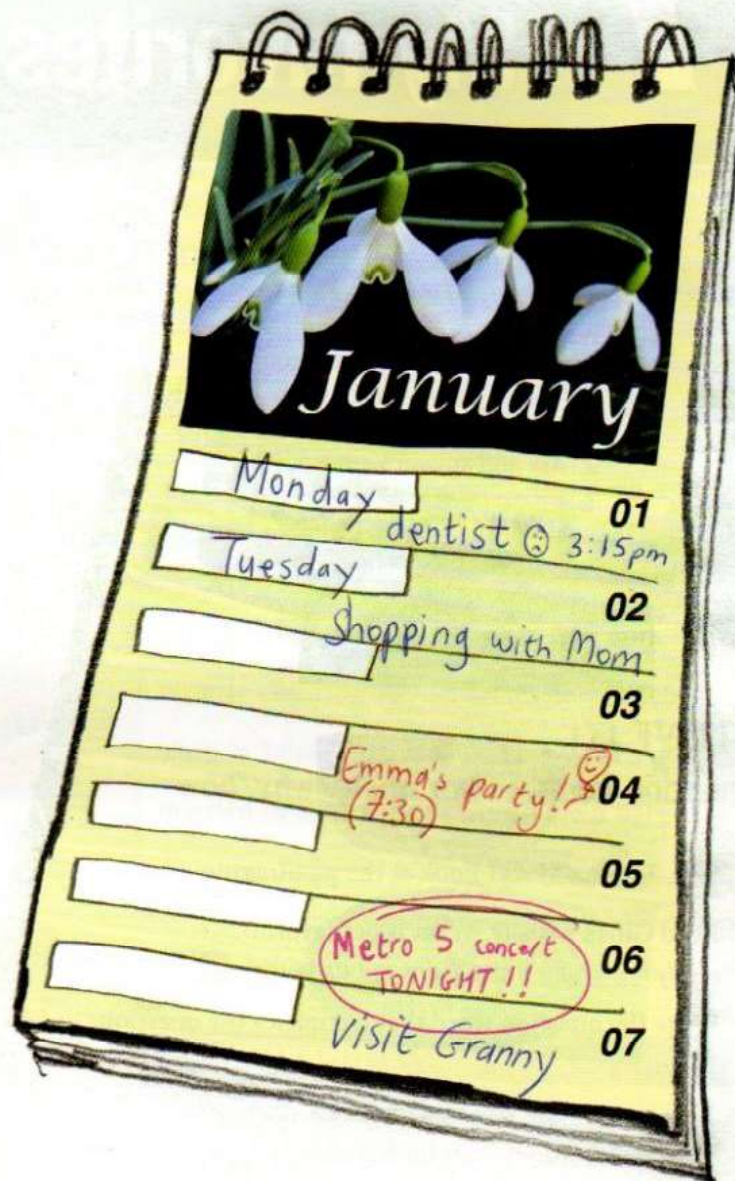 January
Monday
01
dentist 3:15pm
Tuesday
02
Shopping with Mom
03
Emma's party!
(7:30)
04
05
Metro 5 concert
TONIGHT!!
06
Visit Granny
07